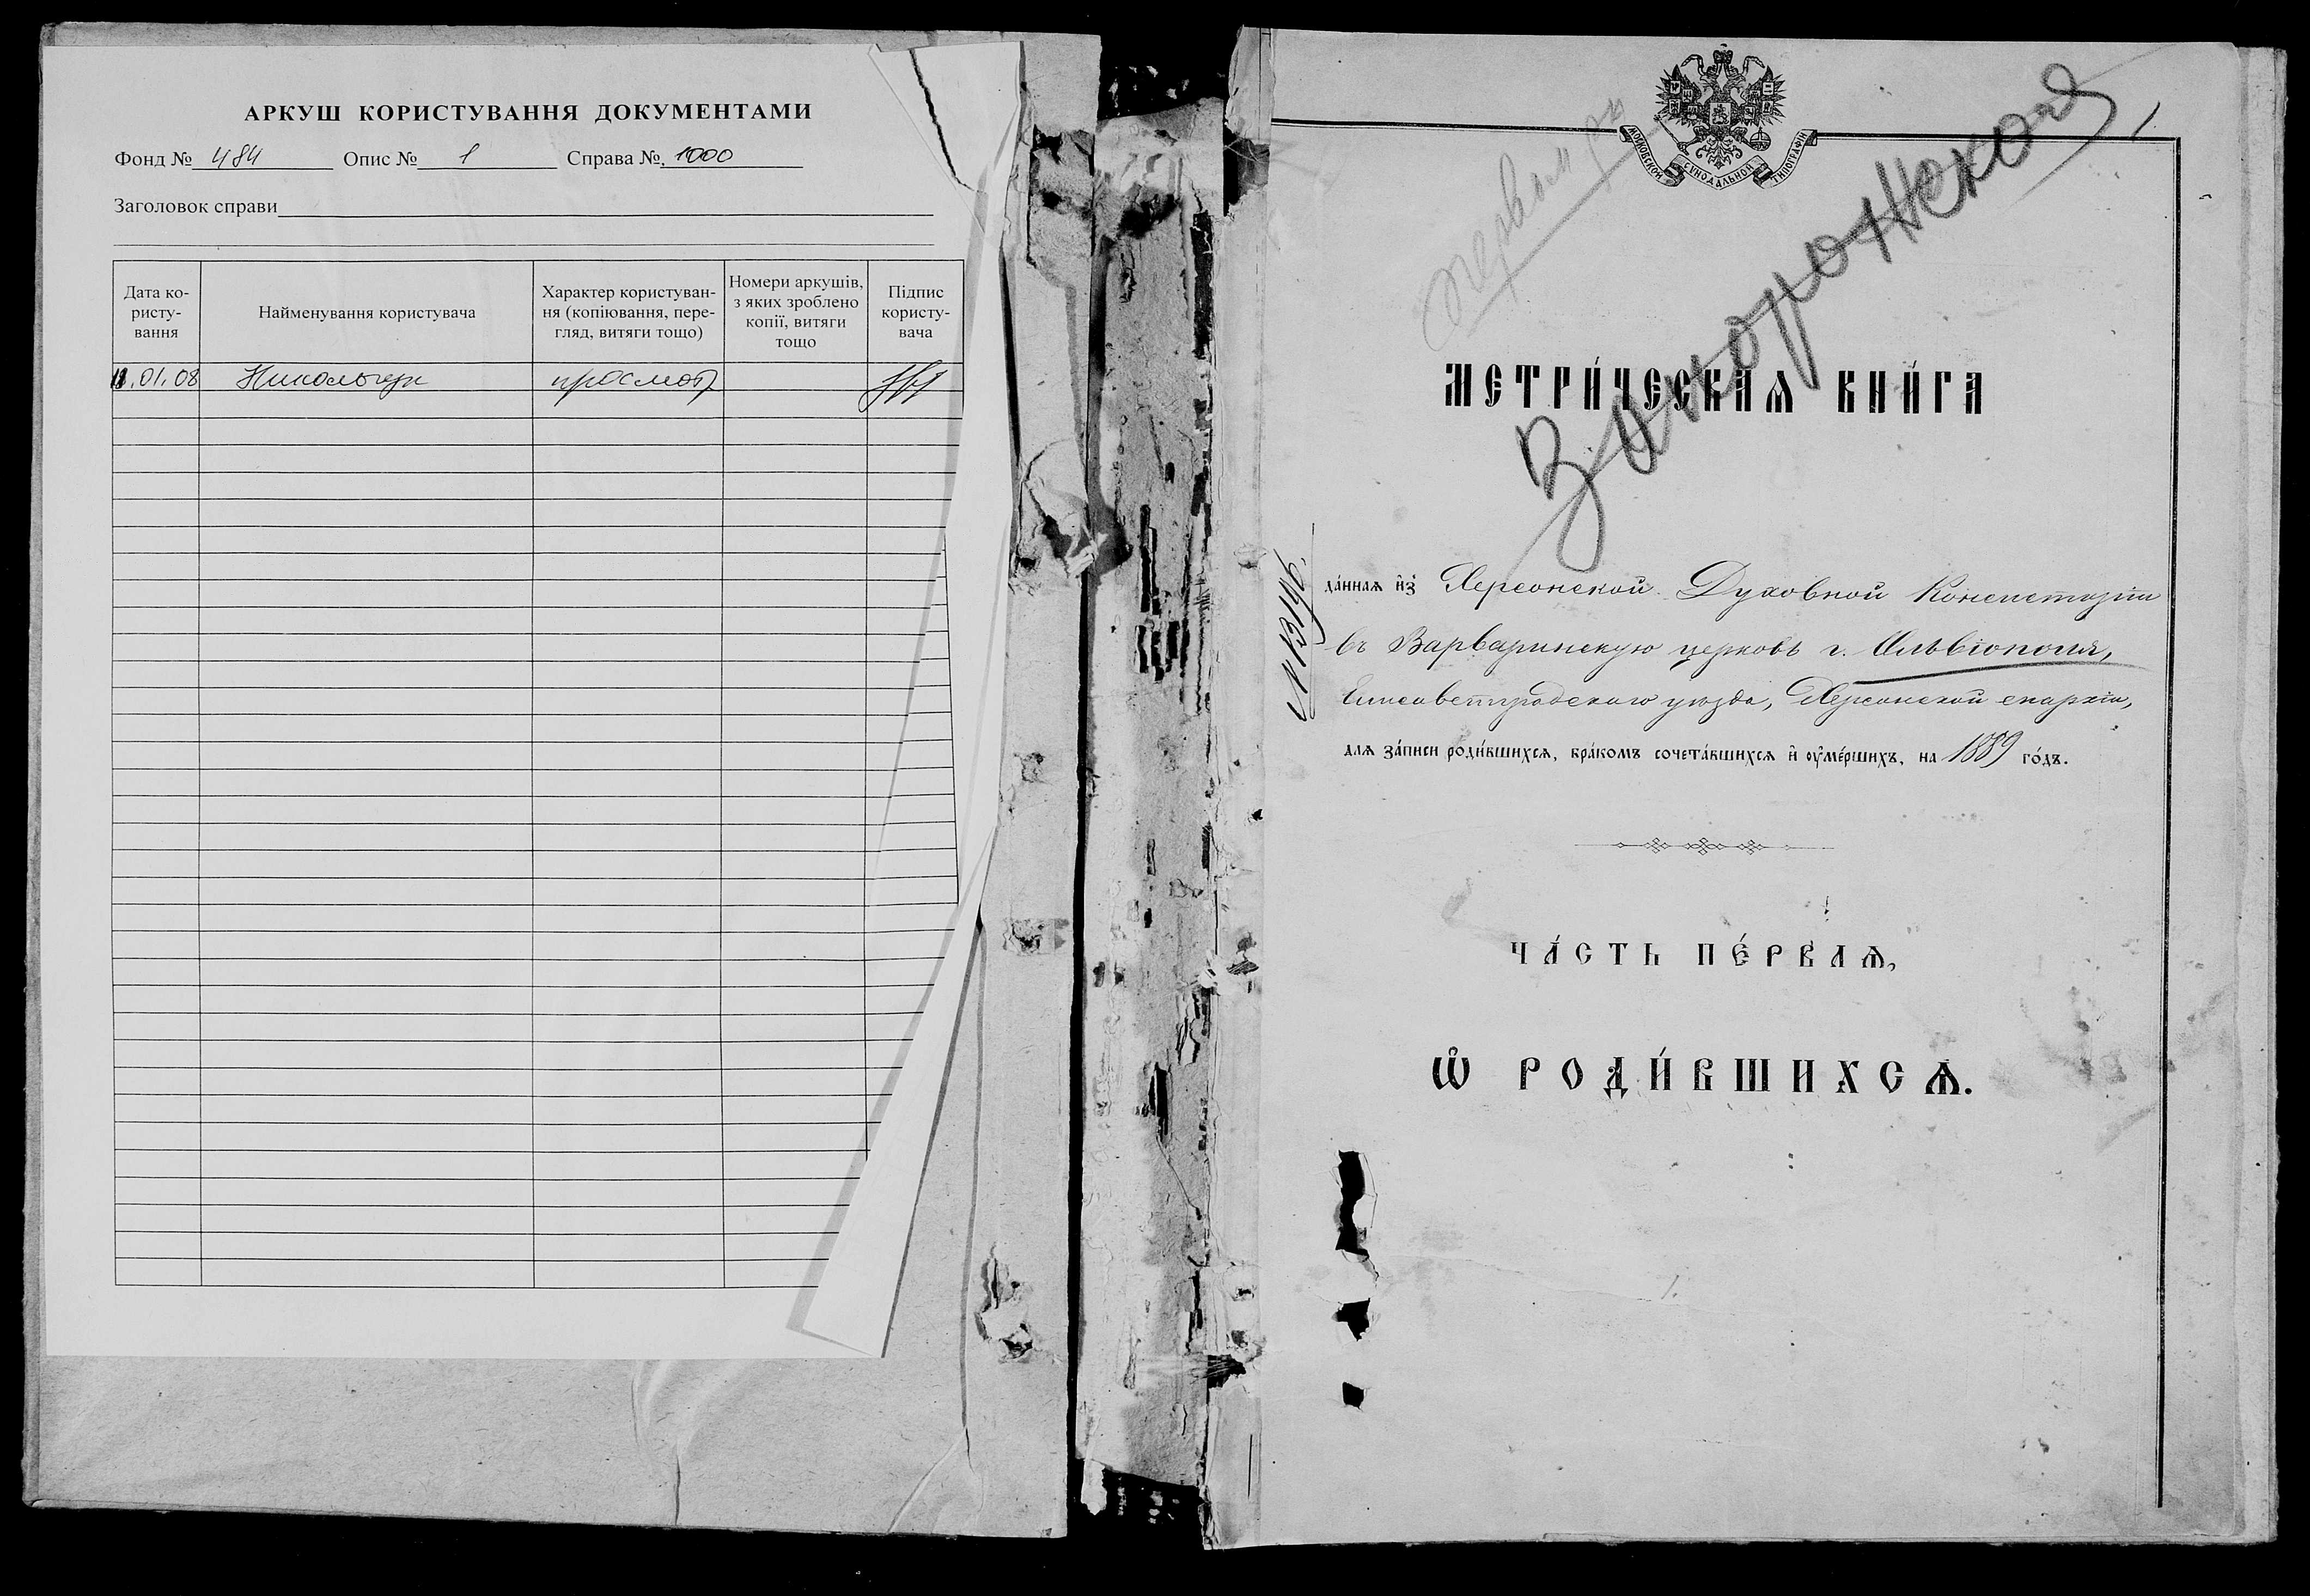 АРКУШ КОРИСТУВАННЯ ДОКУМЕНТАМИ
Фонд № 484 Опис № 1 Справа № 1000
Заголовок справи
Дата ко-
ристу-
вання
Найменування користувача
Характер користуван-
ня (копіювання, пере-
гляд, витяги тощо)
Номери аркушів,
з яких зроблено
копії, витяги
тощо
Підпис
користу-
вача
.01.08 просмот
МОСКОВСКОЙ СѴНОДАЛЬНОЙ ТИПОГРАФІИ
1
МЕТРИ́ЧЕСКАѦ КНИ́ГА
№ 13146.
да́ннаѧ и҆з̾ Херсонской Духовной Консисторіи
въ Варваринскую церковь г. Ольвіополя,
Елисаветградскаго уѣзда, Херсонской епархіи,
для за́писи роди́вшихсѧ, бра́комъ сочета́вшихсѧ и҆ ᲂу҆ме́ршихъ, на 1889 го́дъ.
ЧА́СТЬ ПЕ́РВАѦ,
Ѽ РОДИ́ВШИХСѦ.